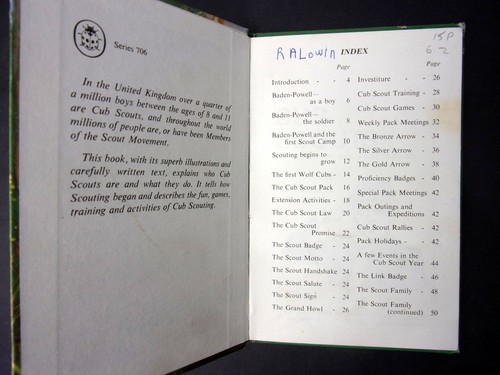 Series 706
In the United Kingdom over a quarter of
a million boys between the ages of 8 and 11
are Cub Scouts, and throughout the world
millions of people are, or have been Members
of the Scout Movement.
This book, with its superb illustrations and
carefully written text, explains who Cub
Scouts are and what they do. It tells how
Scouting began and describes the fun, games,
training and activities of Cub Scouting.
15P
6-2
R ALOWIN INDEX
Page
Introduction - - 4
Baden-Powell—
as a boy 6
Baden-Powell—
the soldier 8
Baden-Powell and the
first Scout Camp 10
Scouting begins to
grow 12
The first Wolf Cubs - 14
The Cub Scout Pack 16
Extension Activities - 18
The Cub Scout Law 20
The Cub Scout
Promise 22
The Scout Badge - 24
The Scout Motto - 24
The Scout Handshake 24
The Scout Salute - 24
The Scout Sign - 24
The Grand Howl - 26
Page
Investiture - - 26
Cub Scout Training - 28
Cub Scout Games - 30
Weekly Pack Meetings 32
The Bronze Arrow - 34
The Silver Arrow - 36
The Gold Arrow - 38
Proficiency Badges - 40
Special Pack Meetings 42
Pack Outings and
Expeditions 42
Cub Scout Rallies - 42
Pack Holidays - - 42
A few Events in the
Cub Scout Year 44
The Link Badge - 46
The Scout Family - 48
The Scout Family
(continued) 50